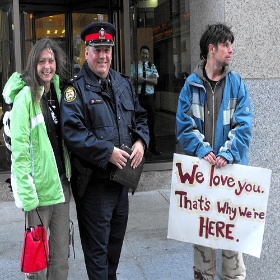 We love you.
That's Why we're
HERE.